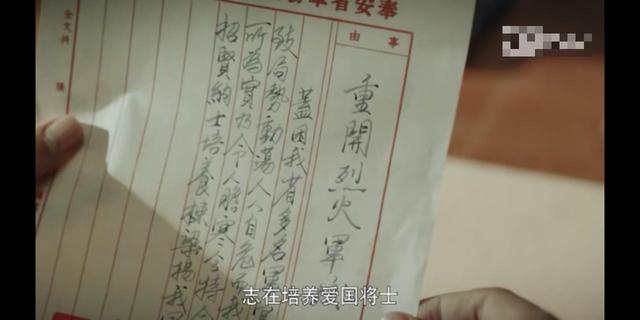 奉安省
事由
重開烈火軍
蓋因我省多名軍
致局勢動蕩人人自危而我
所為實乃令人膽寒今特令
招賢納士培養棟梁揚我
志在培养爱国将士